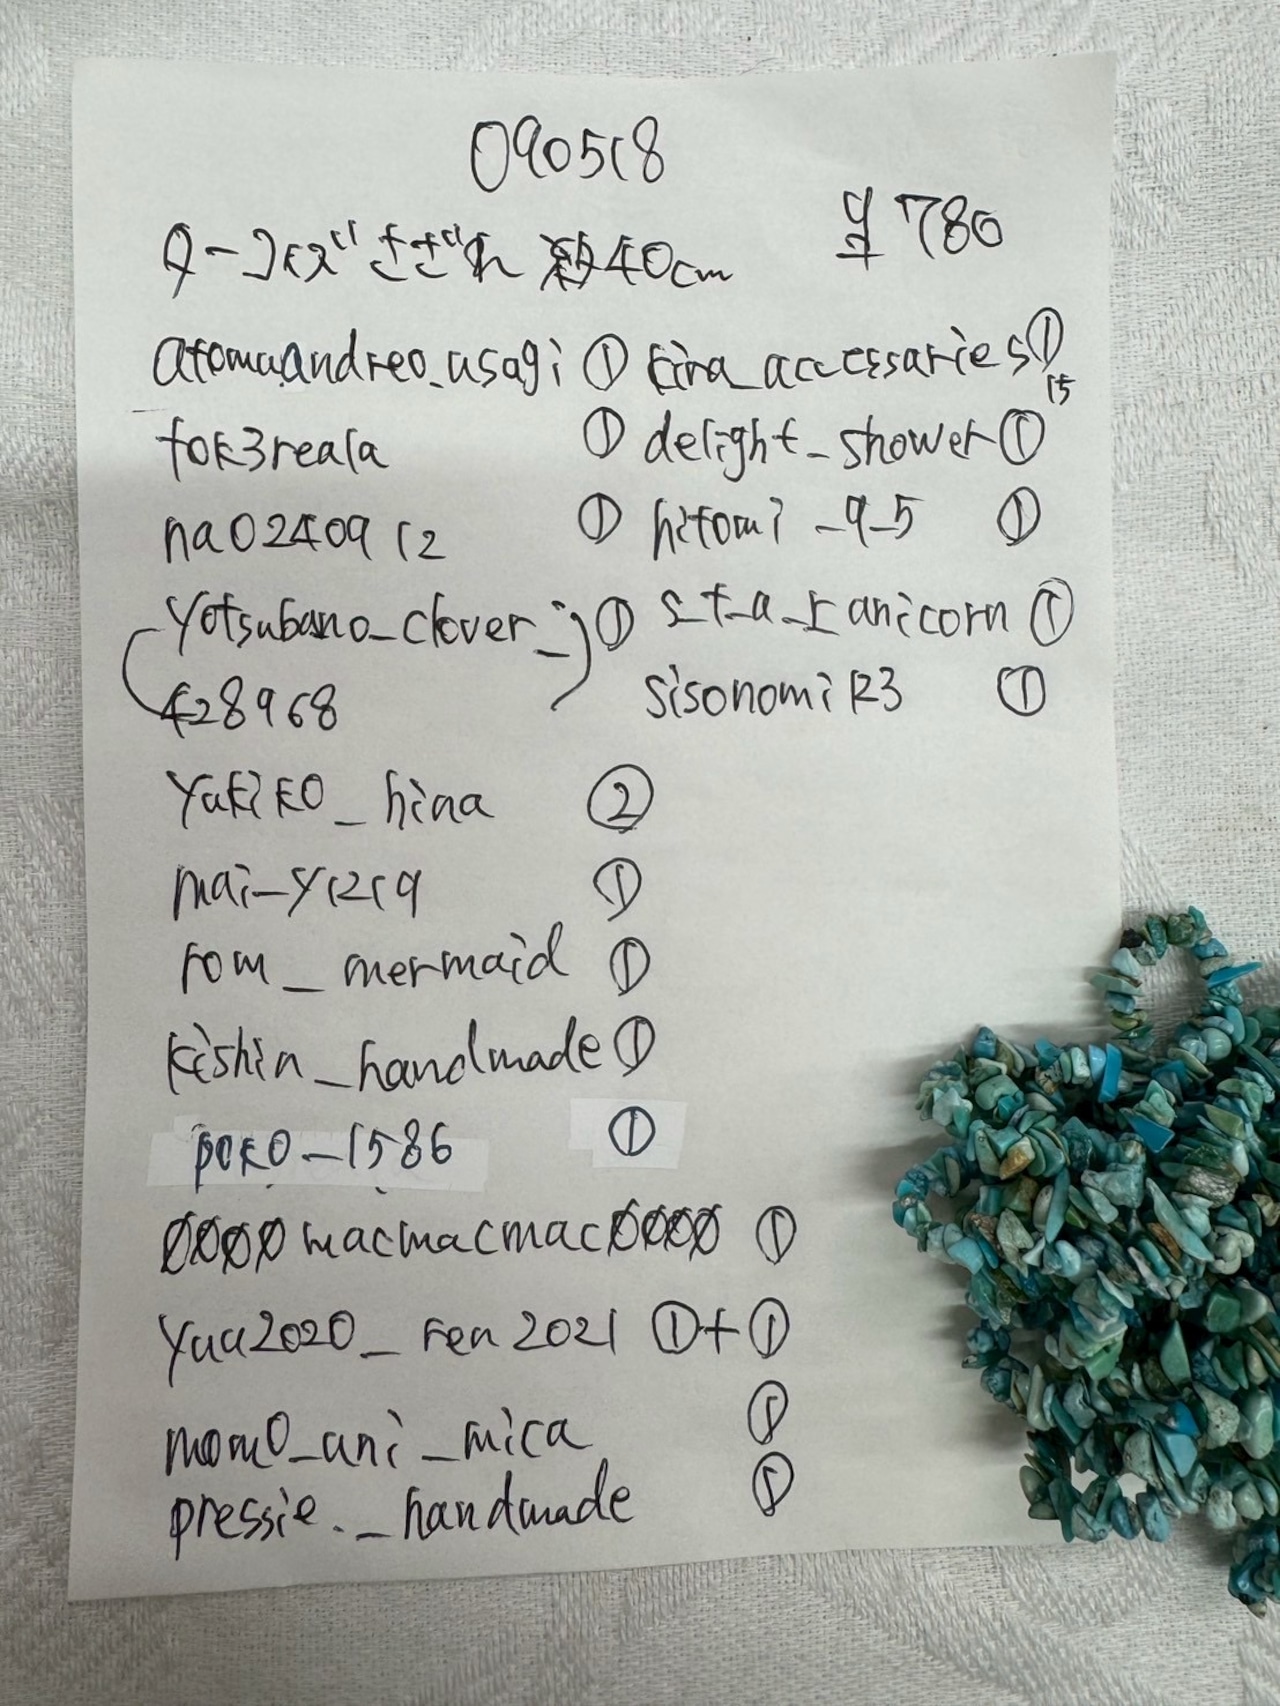 090518
ターコイズさざれ 約40cm ¥780
atomuandreo_usagi ①
tok3reala ①
na02409 12 ①
yotsubano_clover_ ①
428968
yukiko_hina ②
mai-y1219 ①
rom_mermaid ①
kishin_handmade ①
poko-1586 ①
0000macmacmac0000 ①
yuu2020_ren2021 ①+①
momo_uni_mica ①
pressie._handmade ①
kira_accessaries ①
15
delight_shower ①
hitomi_9_5 ①
s_t_a_r unicorn ①
sisonomiR3 ①